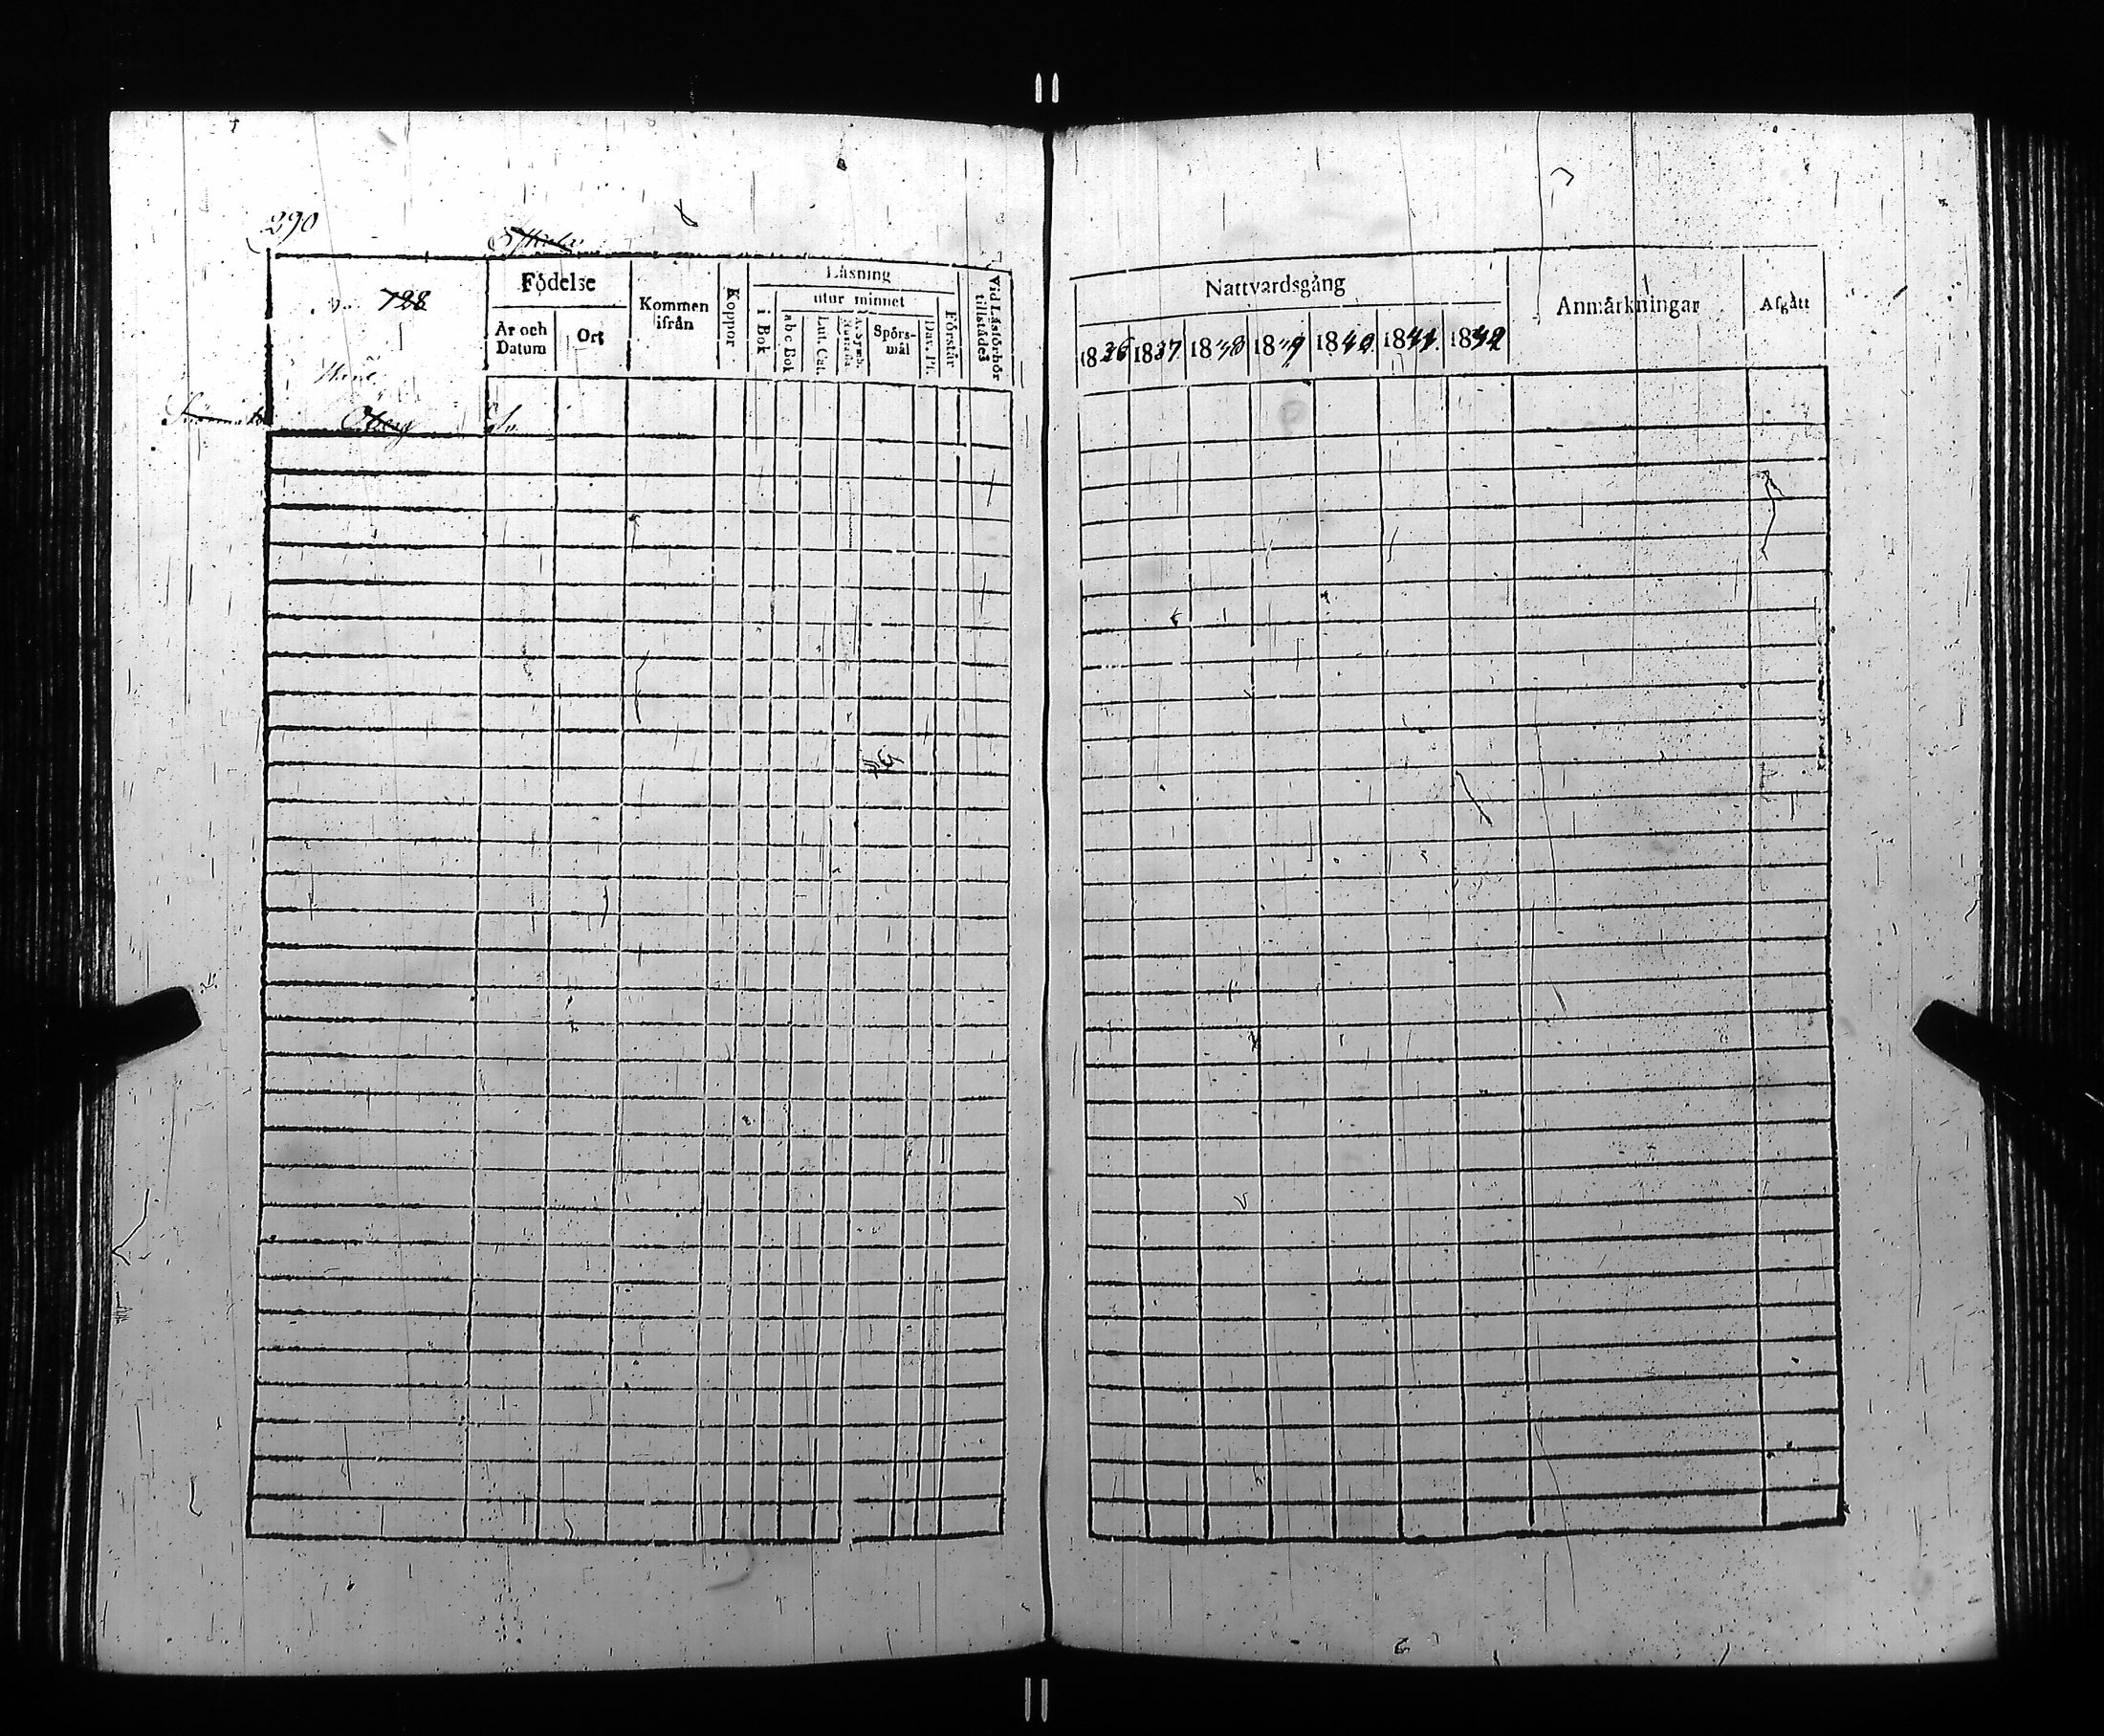 290
No 728
Öberg
Födelse
År och Datum
Ort
Kommen ifrån
Koppor
Läsning
i Bok
utur minnet
abc Bok
Lut. Cat.
Spörs-
mål
Dav. Ps.
Förstår
Vid Läsförhör
tillstädes
Nattvardsgång
1836 1837 1838 1839 1840 1841 1842
Anmärkningar
Afgått